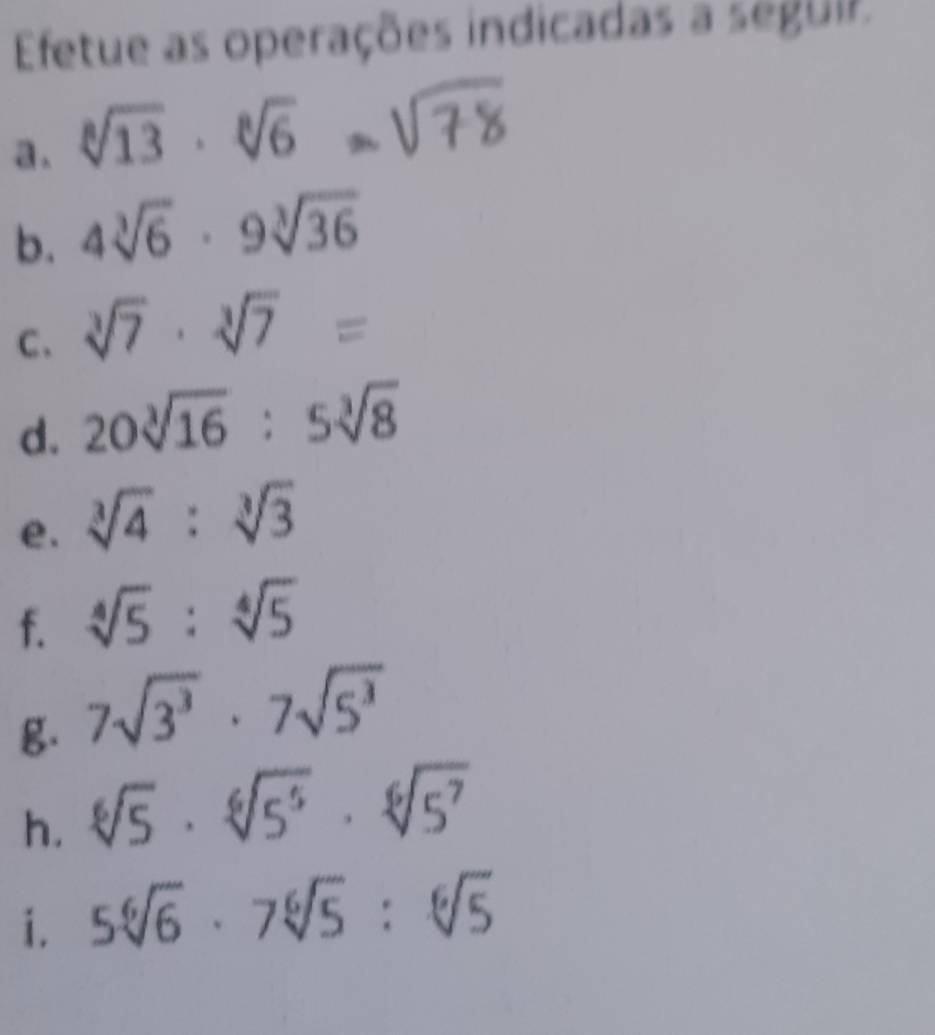 Efetue as operações indicadas a seguir.
a. ⁸√13 · ⁸√6 = √78
b. 4∛6 · 9∛36
c. ∛7 · ∛7 =
d. 20∛16 : 5∛8
e. ∛4 : ∛3
f. ∜5 : ∜5
g. 7√3³ · 7√5³
h. ⁶√5 · ⁶√5⁵ · ⁶√5⁷
i. 5⁶√6 · 7⁶√5 : ⁶√5